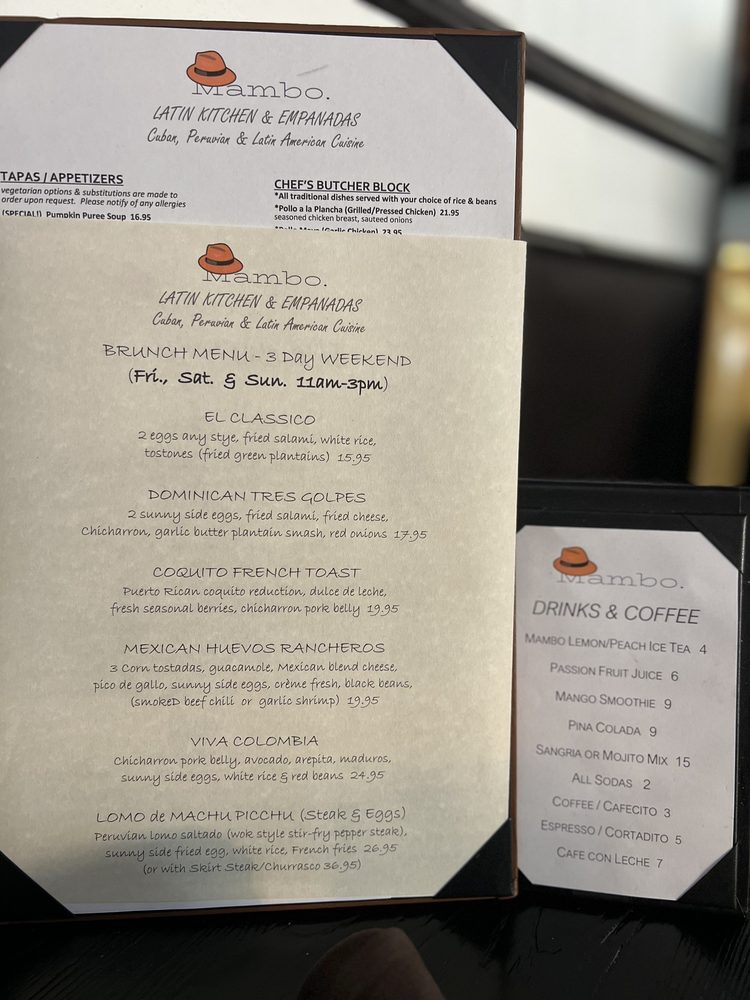 Mambo.
LATIN KITCHEN & EMPANADAS
Cuban, Peruvian & Latin American Cuisine
TAPAS / APPETIZERS
vegetarian options & substitutions are made to
order upon request. Please notify of any allergies
(SPECIAL!) Pumpkin Puree Soup 16.95
CHEF'S BUTCHER BLOCK
*All traditional dishes served with your choice of rice & beans
*Pollo a la Plancha (Grilled/Pressed Chicken) 21.95
seasoned chicken breast, sauteed onions
*Pollo Mayo (Garlic Chicken) 23.95
Mambo.
LATIN KITCHEN & EMPANADAS
Cuban, Peruvian & Latin American Cuisine
BRUNCH MENU - 3 Day WEEKEND
(Fri., Sat. & Sun. 11am-3pm)
EL CLASSICO
2 eggs any stye, fried salami, white rice,
tostones (fried green plantains) 15.95
DOMINICAN TRES GOLPES
2 sunny side eggs, fried salami, fried cheese,
Chicharron, garlic butter plantain smash, red onions 17.95
COQUITO FRENCH TOAST
Puerto Rican coquito reduction, dulce de leche,
fresh seasonal berries, chicharron pork belly 19.95
MEXICAN HUEVOS RANCHEROS
3 Corn tostadas, guacamole, Mexican blend cheese,
pico de gallo, sunny side eggs, crème fresh, black beans,
(smokeD beef chili or garlic shrimp) 19.95
VIVA COLOMBIA
Chicharron pork belly, avocado, arepita, maduros,
sunny side eggs, white rice & red beans 24.95
LOMO de MACHU PICCHU (Steak & Eggs)
Peruvian lomo saltado (wok style stir-fry pepper steak),
sunny side fried egg, white rice, French fries 26.95
(or with Skirt Steak/Churrasco 36.95)
Mambo.
DRINKS & COFFEE
MAMBO LEMON/PEACH ICE TEA 4
PASSION FRUIT JUICE 6
MANGO SMOOTHIE 9
PINA COLADA 9
SANGRIA OR MOJITO MIX 15
ALL SODAS 2
COFFEE / CAFECITO 3
ESPRESSO / CORTADITO 5
CAFE CON LECHE 7